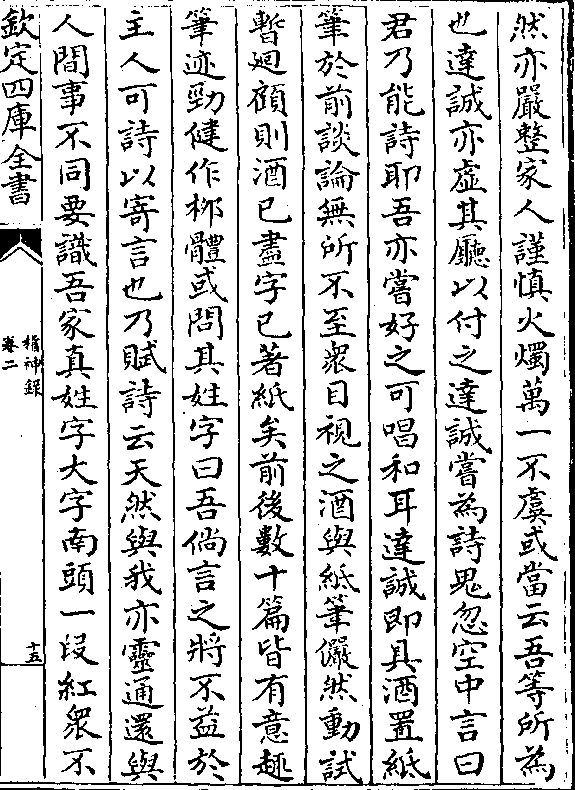 然亦嚴整家人謹慎火燭萬一不虞或當云吾等所為
也達誠亦虛其廳以付之達誠嘗為詩鬼忽空中言曰
君乃能詩耶吾亦嘗好之可唱和耳達誠即具酒置紙
筆於前談論無所不至衆目視之酒與紙筆儼然動試
暫廻顧則酒已盡字已著紙矣前後數十篇皆有意趣
筆迹勁健作柳體或問其姓字曰吾倘言之將不益於
主人可詩以寄言也乃賦詩云天然與我亦靈通還與
人間事不同要識吾家真姓字大字南頭一段紅衆不
欽定四庫全書
稽神録
卷二
十五